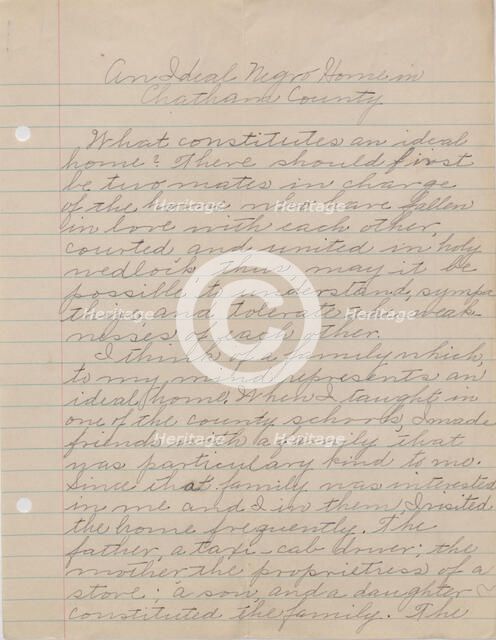 An Ideal Negro Home in
Chatham County
What constitutes an ideal
home? There should first
be two mates in charge
of the house who have fallen
in love with each other,
courted and united in holy
wedlock thus may it be
possible to understand, sympa
thize and tolerate the weak-
nesses of each other.
I think of a family which,
to my mind represents an
ideal home. When I taught in
one of the county schools, I made
friends with a family that
was particulary kind to me.
Since that family was interested
in me and I in them, I visited
the home frequently. The
father, a taxi-cab driver; the
mother the proprietress of a
store; a son, and a daughter
constituted the family. The
Heritage
Heritage
Heritage
Heritage
Heritage
Heritage
Heritage
Heritage
©